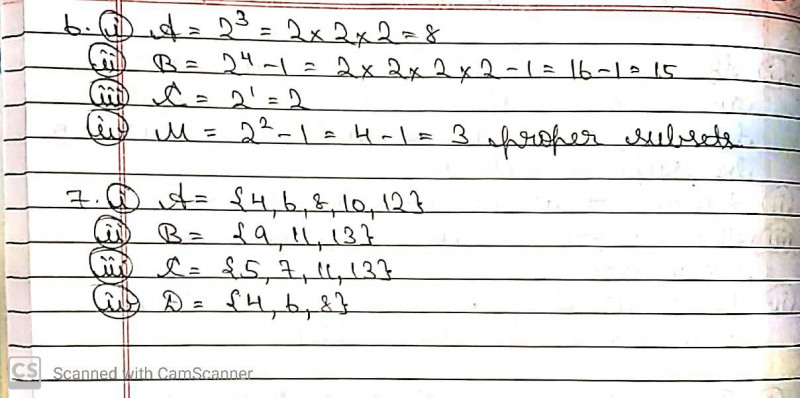 6. (i) A = 2³ = 2 x 2 x 2 = 8
(ii) B = 2⁴ - 1 = 2 x 2 x 2 x 2 - 1 = 16 - 1 = 15
(iii) C = 2¹ = 2
(iv) M = 2² - 1 = 4 - 1 = 3 proper subsets
7. (i) A = {4, 6, 8, 10, 12}
(ii) B = {9, 11, 13}
(iii) C = {5, 7, 11, 13}
(iv) D = {4, 6, 8}
CS Scanned with CamScanner